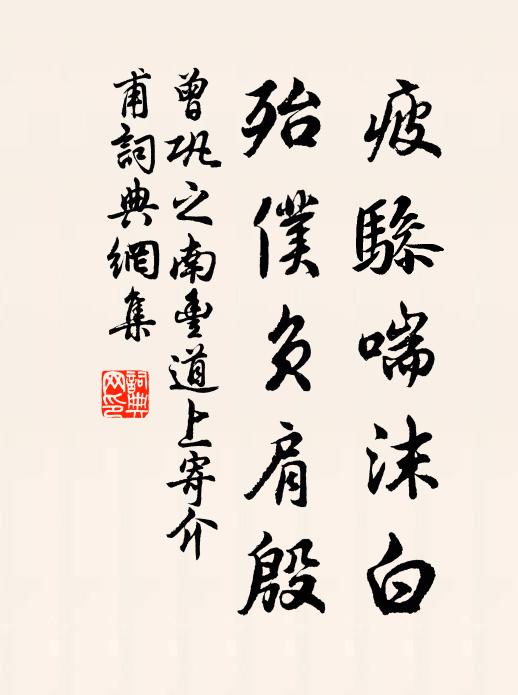 疲驂喘沫白
殆僕負肩殷
曾巩之南豊道上寄介
甫詞典網集
詞典
网印